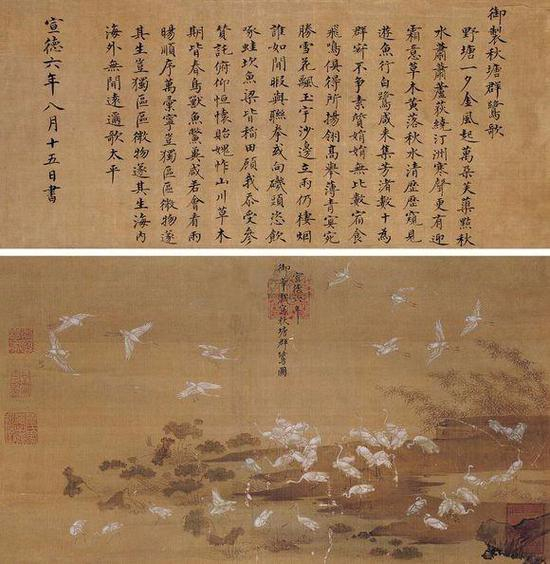 御製秋塘群鷺歌
野塘一夕金風起萬朵芙蕖點秋
水蕭蕭蘆荻繞汀洲寒聲更有迎
霜意草木黃落秋水清歷歷窺見
遊魚行白鷺咸來集芳渚數十為
群寂不爭素質娟娟無比數宿食
飛鳴俱得所揚翎高舉薄青冥宛
勝雪花飄玉宇沙邊立雨仍棲烟
誰如閒暇與聯拳或向磯頭恣飲
啄蛙坎魚梁皆稻田顧我忝受參
贊託俯仰恒懷貽愧怍山川草木
期皆春鳥獸魚鱉奠咸若會看雨
暘順序萬彙寧豈獨區區微物遂
其生豈獨區區微物遂其生海內
海外無間遠邇歌太平
宣德六年八月十五日書
宣德六年
御筆戲寫秋塘群鷺圖